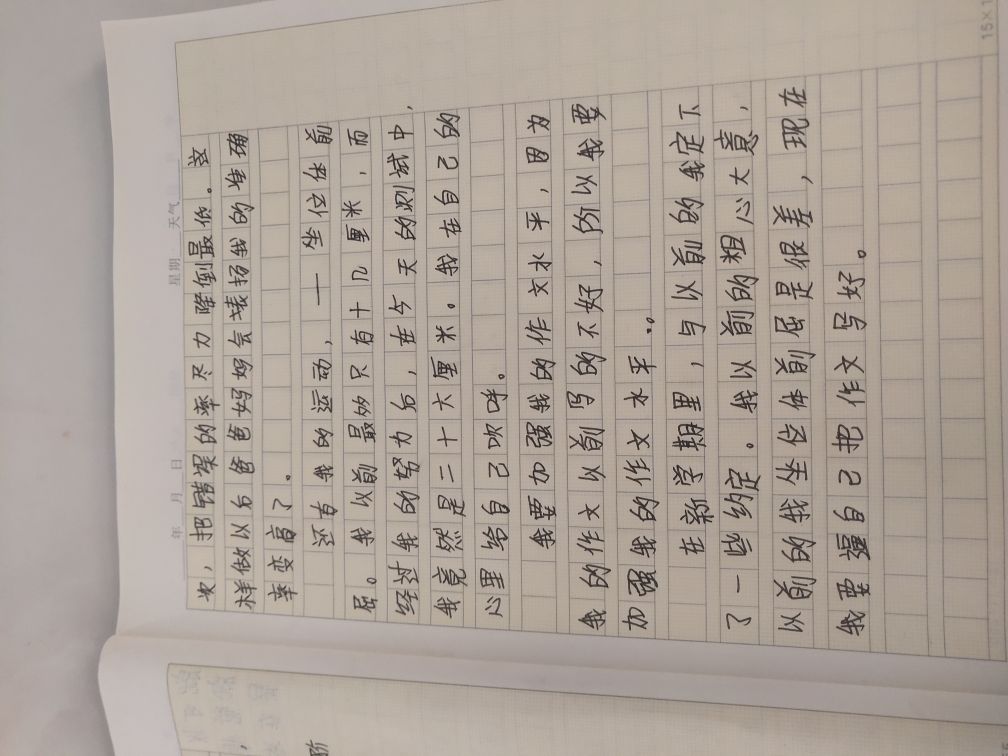 年 月 日 星期 天气
次，把错误的率尽力降倒最低。这
样做以后爸爸妈妈会表扬我的准确
率变高了。
还有我的运动，一坐位体前
屈。我以前最多只有十几厘米，而
经过我的努力后，在今天的测试中，
我竟然是二十六厘米。我在自己的
心里给自己欢呼。
我要加强我的作文水平，因为
我的作文以前写的不好，所以我要
加强我的作文水平..
在新学期里，与以前的我定下
了一些约定。我以前的粗心大意，
以前的我坐位体前屈是很差，现在
我要强自己把作文写好。